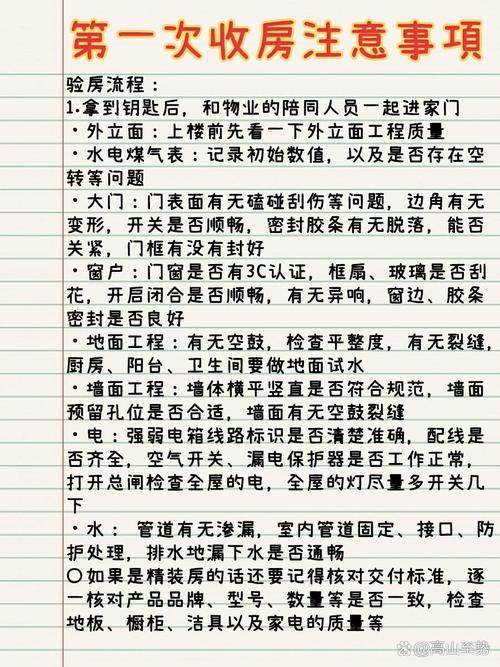 第一次收房注意事項
验房流程：
1.拿到钥匙后，和物业的陪同人员一起进家门
·外立面：上楼前先看一下外立面工程质量
·水电煤气表：记录初始数值，以及是否存在空
转等问题
·大门：门表面有无磕碰刮伤等问题，边角有无
变形，开关是否顺畅，密封胶条有无脱落，能否
关紧，门框有没有封好
·窗户：门窗是否有3C认证，框扇、玻璃是否刮
花，开后闭合是否顺畅，有无异响，窗边、胶条
密封是否良好
·地面工程：有无空鼓，检查平整度，有无裂缝，
厨房、阳台、卫生间要做地面试水
·墙面工程：墙体横平竖直是否符合规范，墙面
预留孔位是否合适，墙面有无空鼓裂缝
·电：强弱电箱线路标识是否清楚准确，配线是
否齐全，空气开关、漏电保护器是否工作正常，
打开总闸检查全屋的电，全屋的灯尽量多开关几
下
·水： 管道有无渗漏，室内管道固定、接口、防
护处理，排水地漏下水是否通畅
〇如果是精装房的话还要记得核对交付标准，逐
一核对产品品牌、型号、数量等是否一致，检查
地板、橱柜、洁具以及家电的质量等
高山至势